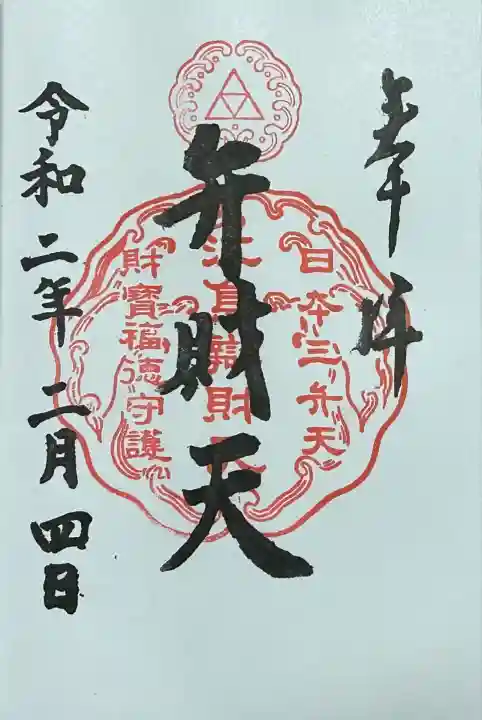 奉拝
日本三弁天
弁財天
財寶福徳守護
令和二年二月四日